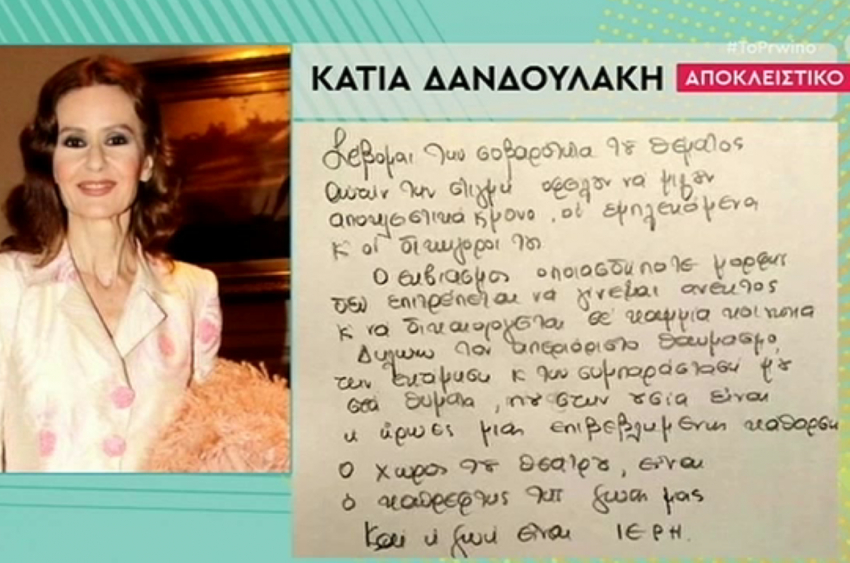 #ToPrwino
ΚΑΤΙΑ ΔΑΝΔΟΥΛΑΚΗ ΑΠΟΚΛΕΙΣΤΙΚΟ
Σέβομαι την σοβαρότητα τȣ θέματος
αυτήν την στιγμή οφείλον να μιλȣν
αποκλειστικά κ μόνο, οι εμπλεκόμενοι
κ οι δικηγόροι τȣς
Ο εκβιασμός οποιασδήποτε μορφής
δεν επιτρέπεται να γίνεται ανεκτός
κ να δικαιολογείται σε καμμία κοινωνία
Δηλώνω τον απεριόριστο θαυμασμό,
την εκτίμηση κ την συμπαράστασή μȣ
στα θύματα, πȣ στην ȣσία είναι
κ ήρωες μιας επιβεβλημένης κάθαρσης
Ο χώρος τȣ θεάτρȣ, είναι
ο καθρέφτης της ζωής μας
Και η ζωή είναι ΙΕΡΗ.